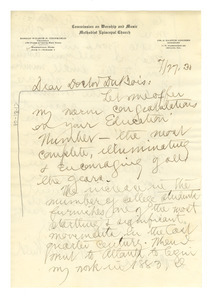 Commission on Worship and Music
Methodist Episcopal Church
7/27, 31
Dear Doctor DuBois:
Let me offer
my warm congratulations
on your Education
Number – the most
complete, illuminating
& encouraging of all
the years.
The increase in the
number of college students
furnishes one of the most
startling & significant
movements in the last
quarter century. When I
went to Atlanta to begin
my work in 1883,